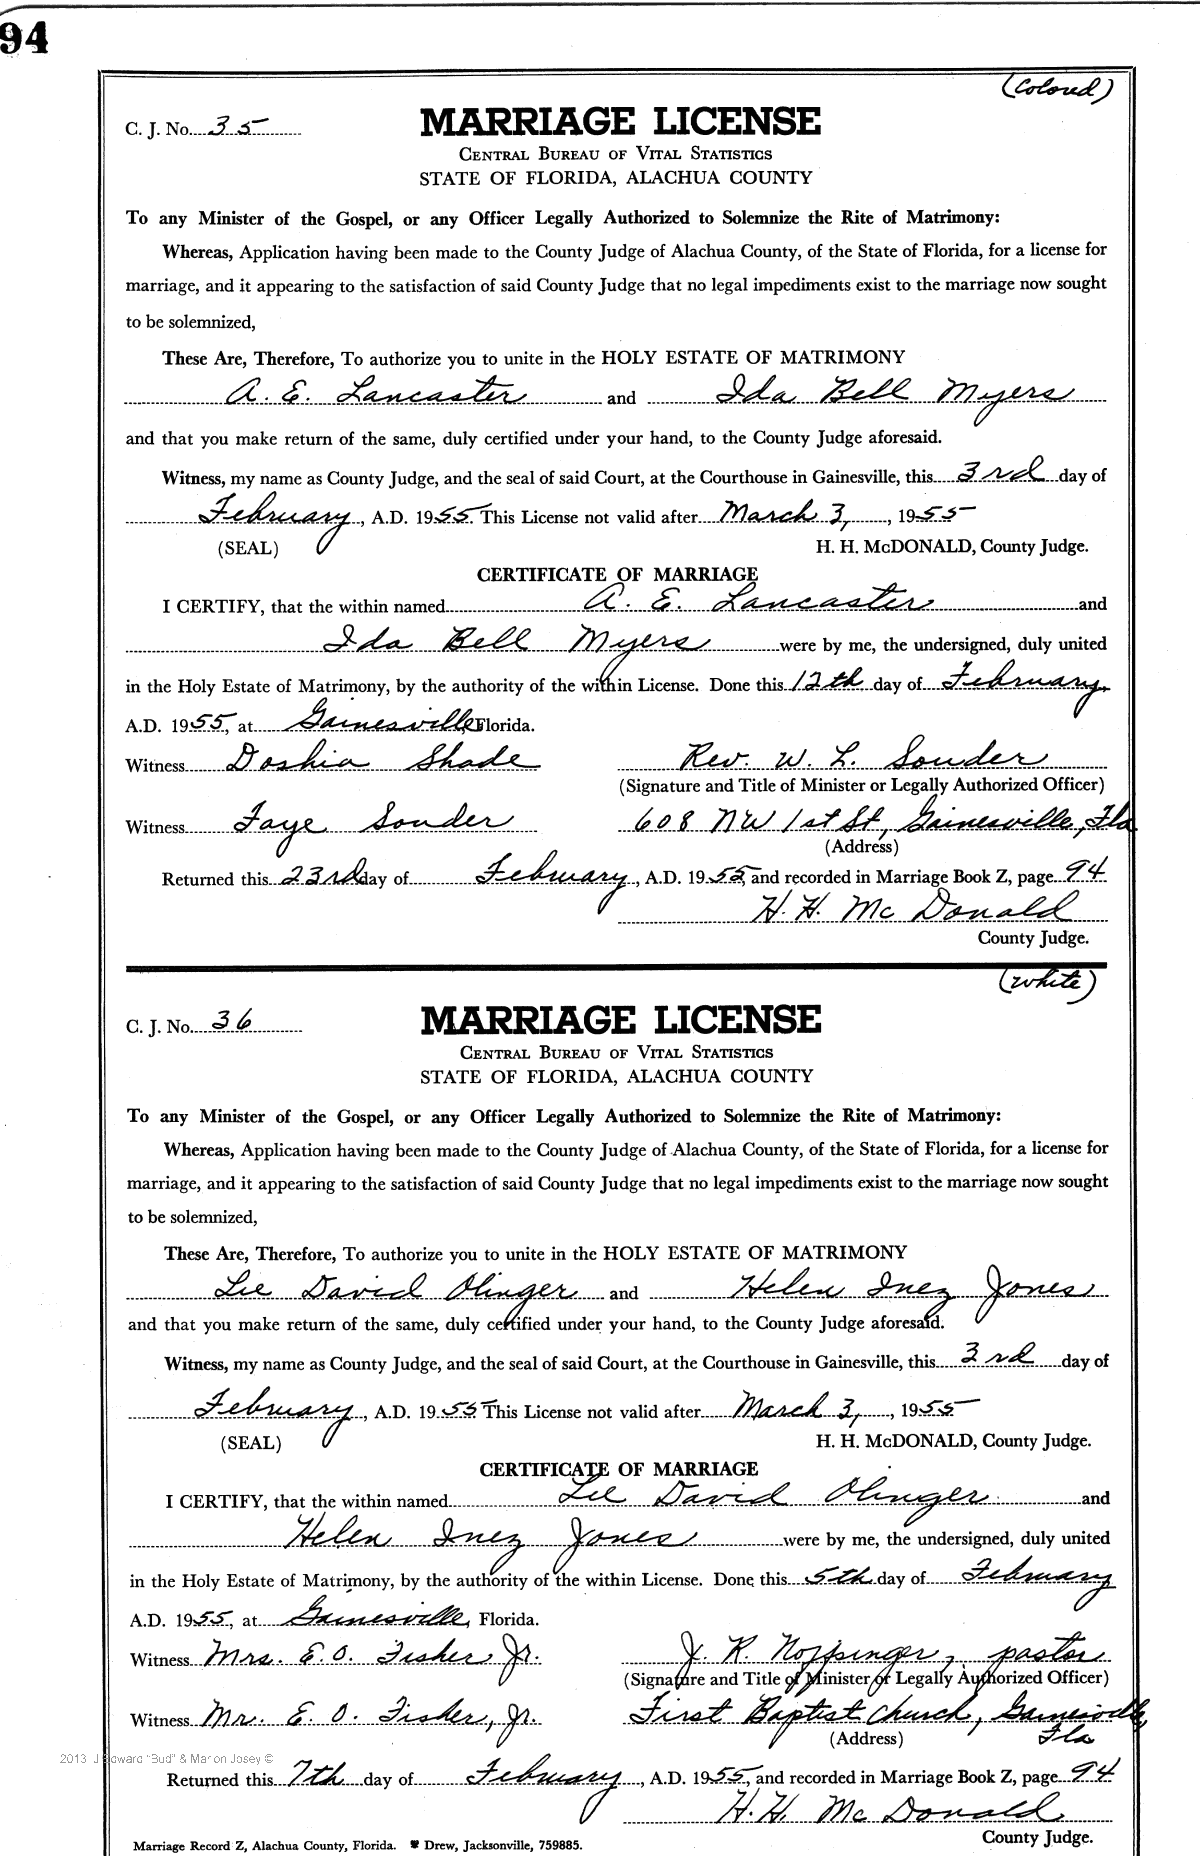 94
(Colored)
C. J. No. 35 MARRIAGE LICENSE
CENTRAL BUREAU OF VITAL STATISTICS
STATE OF FLORIDA, ALACHUA COUNTY
To any Minister of the Gospel, or any Officer Legally Authorized to Solemnize the Rite of Matrimony:
Whereas, Application having been made to the County Judge of Alachua County, of the State of Florida, for a license for
marriage, and it appearing to the satisfaction of said County Judge that no legal impediments exist to the marriage now sought
to be solemnized,
These Are, Therefore, To authorize you to unite in the HOLY ESTATE OF MATRIMONY
A. E. Lancaster and Ida Bell Myers
and that you make return of the same, duly certified under your hand, to the County Judge aforesaid.
Witness, my name as County Judge, and the seal of said Court, at the Courthouse in Gainesville, this 3rd day of
February, A.D. 1955. This License not valid after March 3, 1955
(SEAL) H. H. McDONALD, County Judge.
CERTIFICATE OF MARRIAGE
I CERTIFY, that the within named A. E. Lancaster and
Ida Bell Myers were by me, the undersigned, duly united
in the Holy Estate of Matrimony, by the authority of the within License. Done this 12th day of February
A.D. 1955, at Gainesville, Florida.
Witness Doshia Shade Rev. W. L. Souder
(Signature and Title of Minister or Legally Authorized Officer)
Witness Faye Souder 608 NW 1st St, Gainesville, Fla
(Address)
Returned this 23rd day of February, A.D. 1955, and recorded in Marriage Book Z, page 94
H. H. McDonald
County Judge.
(White)
C. J. No. 36 MARRIAGE LICENSE
CENTRAL BUREAU OF VITAL STATISTICS
STATE OF FLORIDA, ALACHUA COUNTY
To any Minister of the Gospel, or any Officer Legally Authorized to Solemnize the Rite of Matrimony:
Whereas, Application having been made to the County Judge of Alachua County, of the State of Florida, for a license for
marriage, and it appearing to the satisfaction of said County Judge that no legal impediments exist to the marriage now sought
to be solemnized,
These Are, Therefore, To authorize you to unite in the HOLY ESTATE OF MATRIMONY
Lee David Olinger and Helen Inez Jones
and that you make return of the same, duly certified under your hand, to the County Judge aforesaid.
Witness, my name as County Judge, and the seal of said Court, at the Courthouse in Gainesville, this 3rd day of
February, A.D. 1955 This License not valid after March 3, 1955
(SEAL) H. H. McDONALD, County Judge.
CERTIFICATE OF MARRIAGE
I CERTIFY, that the within named Lee David Olinger and
Helen Inez Jones were by me, the undersigned, duly united
in the Holy Estate of Matrimony, by the authority of the within License. Done this 5th day of February
A.D. 1955, at Gainesville, Florida.
Witness Mrs. E. O. Fisher, Jr. J. R. pastor
(Signature and Title of Minister or Legally Authorized Officer)
Witness Mr. E. O. Fisher, Jr. First Baptist Church, Gainesville,
(Address) Fla
2013 J Edward "Bud" & Marion Josey ©
Returned this 7th day of February, A.D. 1955, and recorded in Marriage Book Z, page 94
H. H. McDonald
County Judge.
Marriage Record Z, Alachua County, Florida. Drew, Jacksonville, 759885.